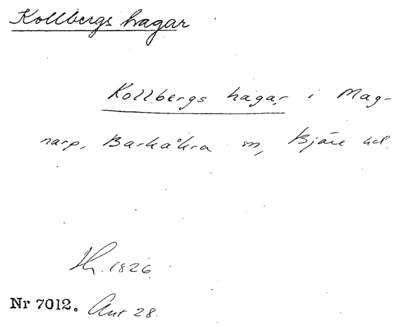 Kollbergs hagar
Kollbergs hagar i Mag-
narp, Barkåkra sn, Bjäre hd.
Sk. 1826
Nr 7012. Avr 28.